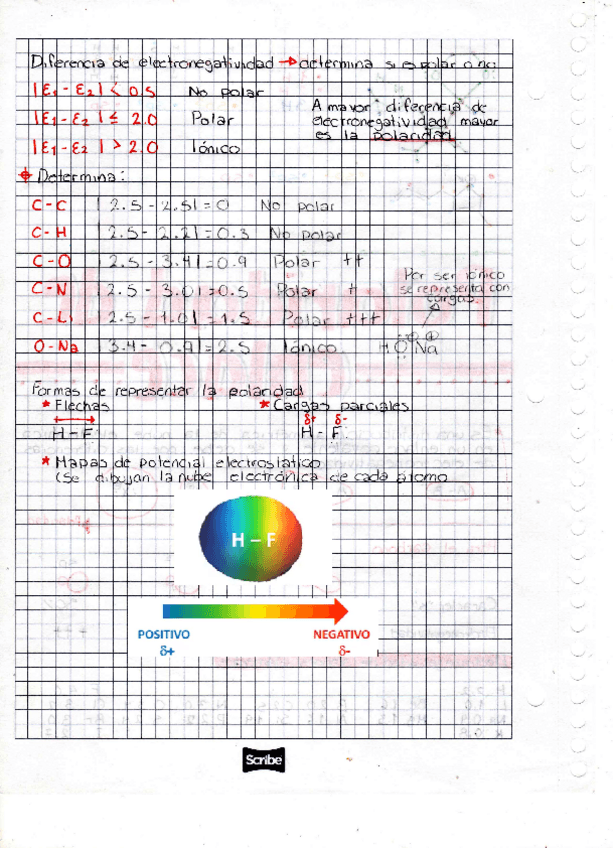 Diferencia de electronegatividad → determina si es polar o no
|E1 - E2| < 0.5 No polar
|E1 - E2| ≤ 2.0 Polar
|E1 - E2| > 2.0 Iónico
A mayor diferencia de
electronegatividad mayor
es la polaridad
Determina:
C-C |2.5 - 2.5| = 0 No polar
C-H |2.5 - 2.2| = 0.3 No polar
C-O |2.5 - 3.4| = 0.9 Polar ++
C-N |2.5 - 3.0| = 0.5 Polar +
C-Li |2.5 - 1.0| = 1.5 Polar +++
O-Na |3.4 - 0.9| = 2.5 Iónico H O Na
Por ser iónico
se representa con
cargas.
Formas de representar la polaridad
* Flechas
H - F
* Cargas parciales
δ+ δ-
H - F
* Mapas de potencial electrostático
(Se dibujan la nube electrónica de cada átomo
H – F
POSITIVO
δ+
NEGATIVO
δ-
Scribe